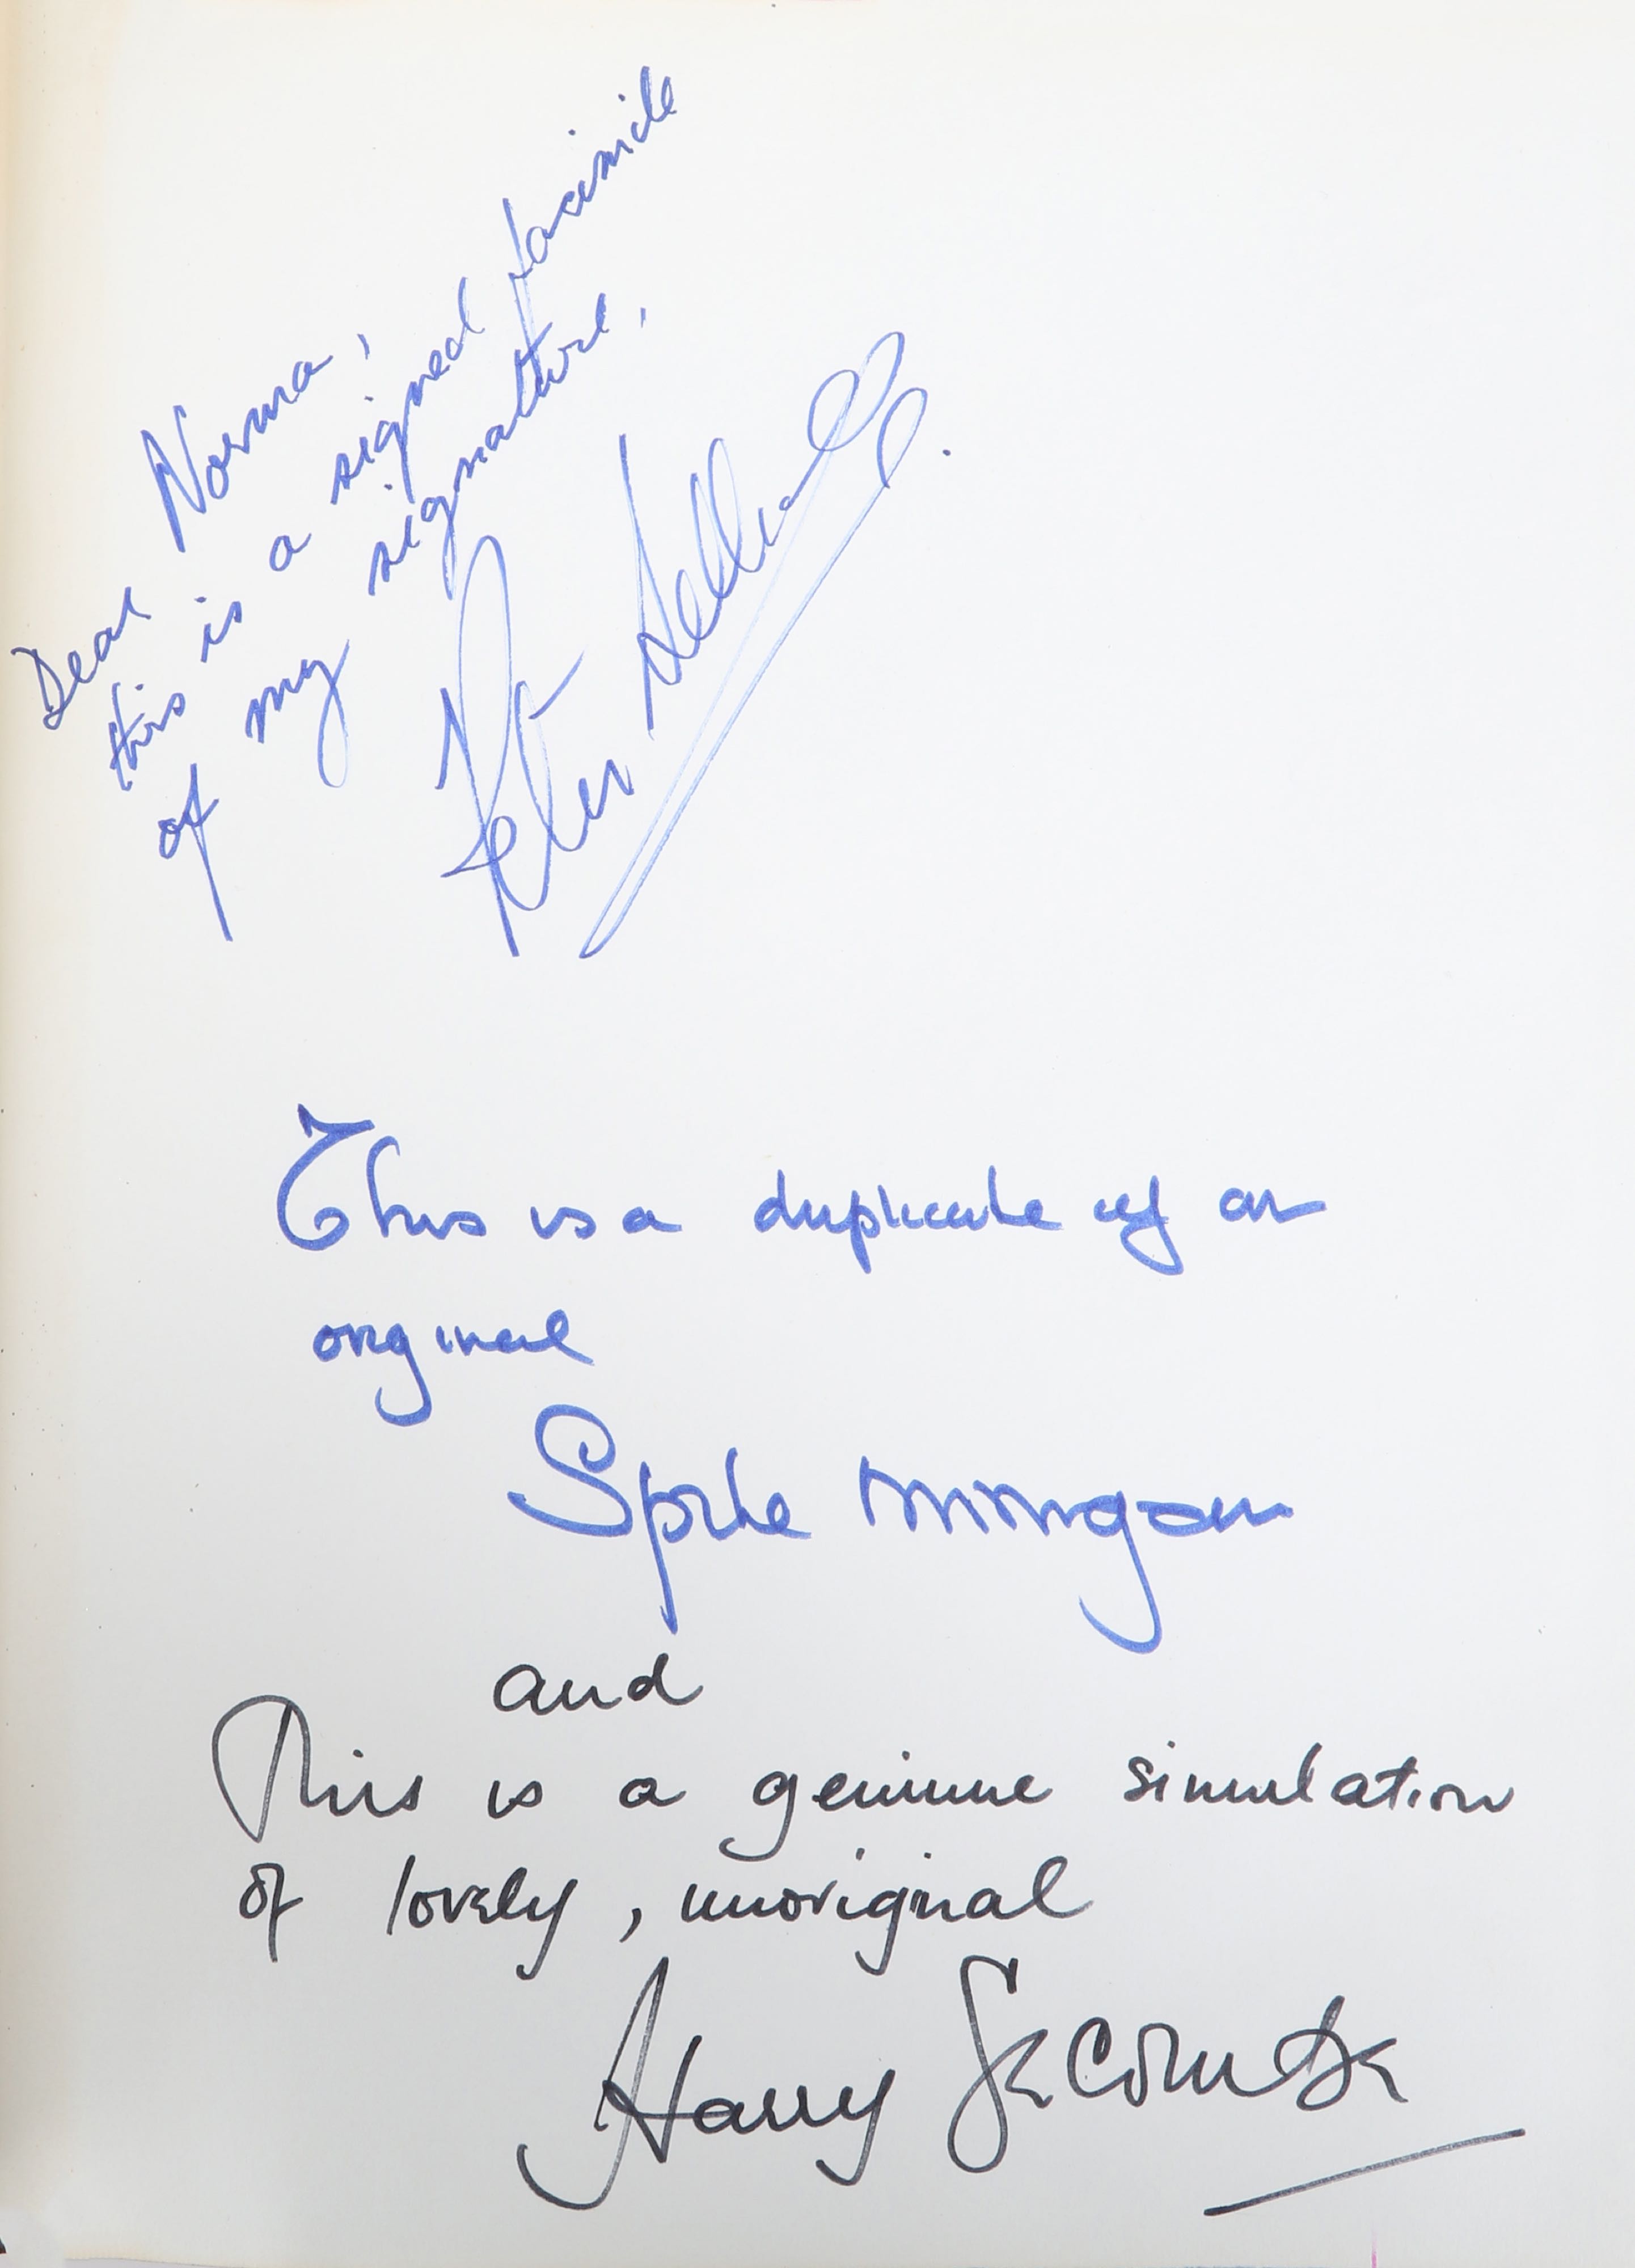 Dear Norma,
this is a signed facimile
of my signature,
Peter Sellers.
This is a duplicate of an
original
Spike Milligan
and
This is a genuine simulation
of lovely, unoriginal
Harry Secombe